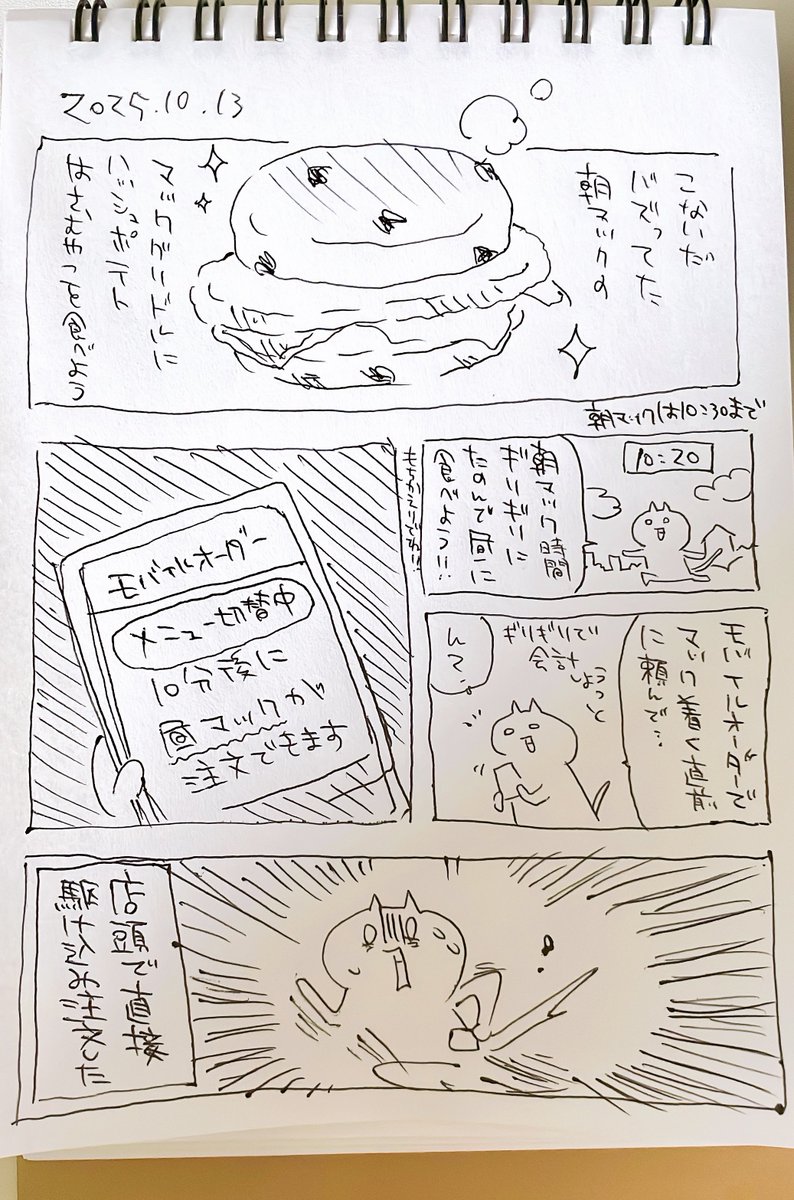 2025.10.13
こないだ
バズってた
朝マックの
マックグリドルに
ハッシュポテト
はさむやつを食べよう
朝マックは10:30まで
10:20
朝マック時間
ギリギリに
たのんで昼に
食べよう!!
もちかえりでね!!
モバイルオーダーで
マック着く直前
に頼んで…
ギリギリで
会計
しようっと
んで。
モバイルオーダー
メニュー切替中
10分後に
昼マックが
注文できます
店頭で直接
駆け込み注文した